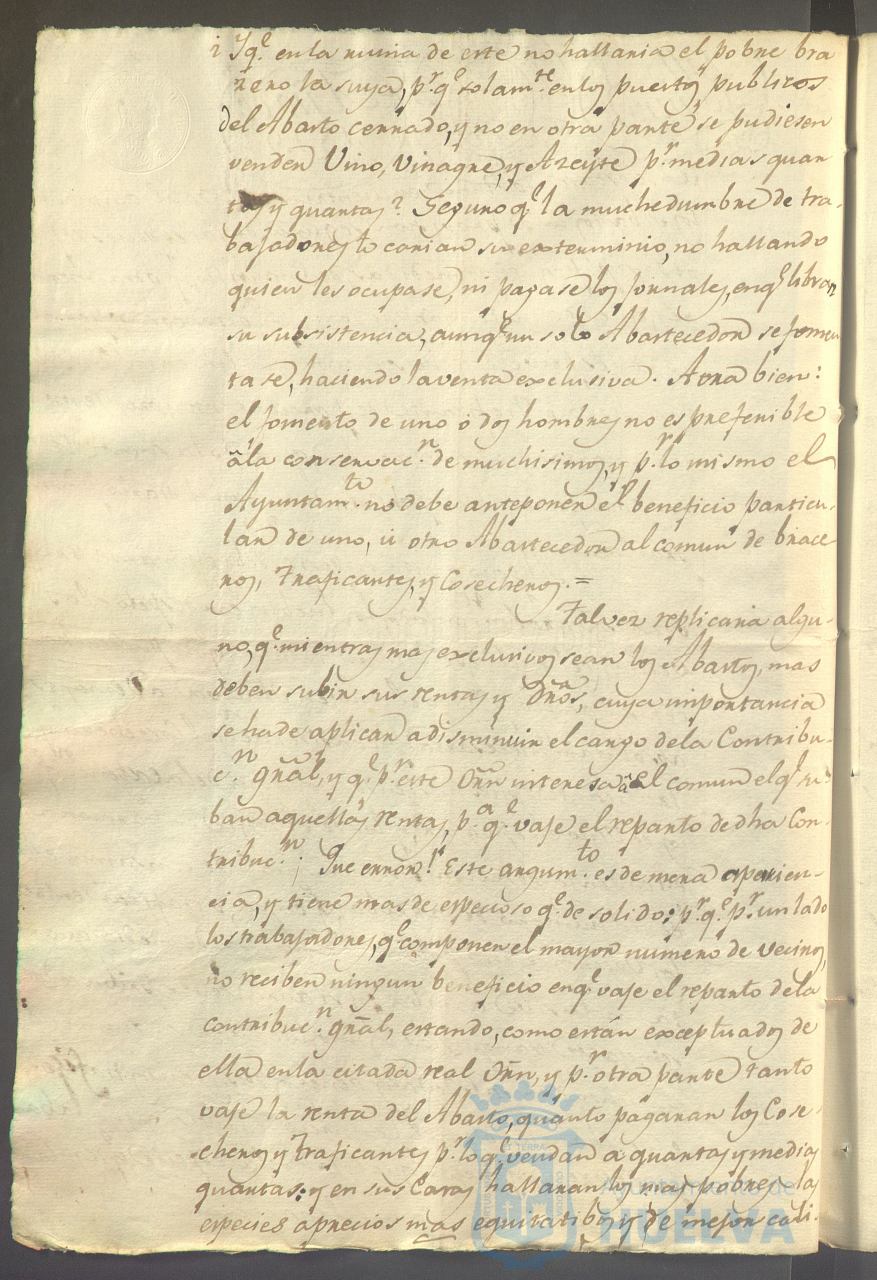 i Yq.e en la ruina de este no hallaria el pobre bra
zero la suya, p.r q.e solam.te en los puestos publicos
del Abasto cerrado, y no en otra parte se pudiesen
vender Vino, Vinagre, y Azeyte p.r medias quar
tas y quartas? Seguro q.e la muchedumbre de tra-
bajadores tocarian su exterminio, no hallando
quien les ocupase, ni pagase los jornales, en q.e libran
su subsistencia, aunq.e un solo Abastecedor se fomen
tase, haciendo la venta exclusiva. Aora bien:
el fomento de uno ó dos hombres no es preferible
â la conservac.n de muchisimos, y p.r lo mismo el
Ayuntam.to no debe anteponer el beneficio particu-
lar de uno, ú otro Abastecedor al comun de brace
ros, Traficantes, y Cosecheros.=
Talvez replicaria algu-
no, q.e mientras mas exclusivos sean los Abastos, mas
deben subir sus rentas y Dr̃os, cuya importancia
se ha de aplicar a disminuir el cargo de la Contribu-
c.n gñal, y q.e p.r este Orñ interesa â el comun el q.e su-
ban aquellas rentas, p.a q.e vaje el reparto de dha Con-
tribuc.n; Que error! Este argum.to es de mera aparien-
cia, y tiene mas de especioso q.e de solido: p.r q.e p.r un lado
los trabajadores, q.e componen el mayor numero de vecinos,
no reciben ningun beneficio en q.e vaje el reparto de la
contribuc.n gñal, estando, como están exceptuados de
ella en la citada real Orñ, y p.r otra parte tanto
vaje la renta del Abasto, quanto pagaran los Cose-
cheros y traficantes p.r lo q.e vendan a quartas y medias
quartas: y en sus Casas hallaran los mas pobres las
especies a precios mas equitatibos y de mejor cali-
Ayuntamiento de
HUELVA